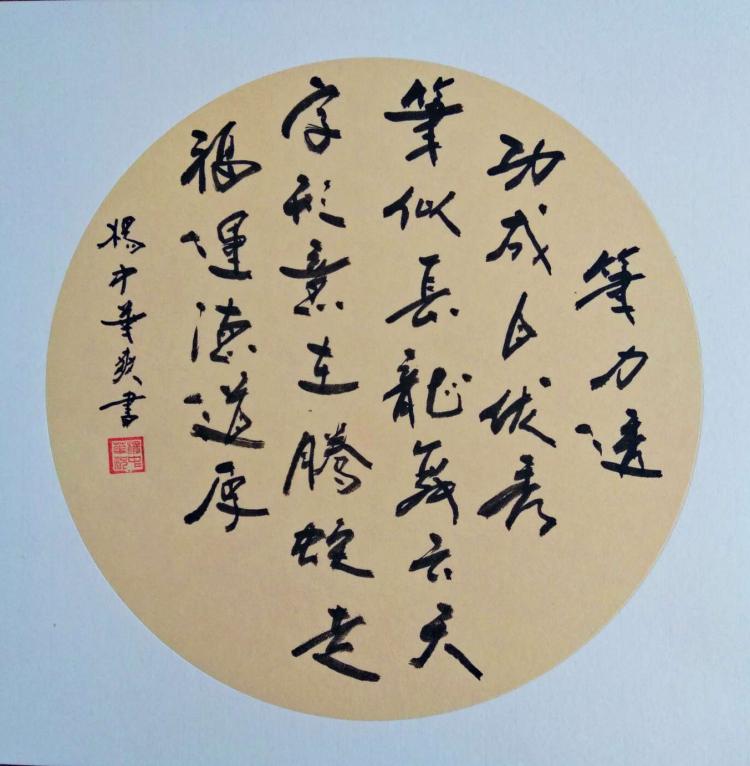 筆力透
功成自伏秀
筆似長龍舞云天
字形意在騰蛇走
福運德道厚
楊中華爽書